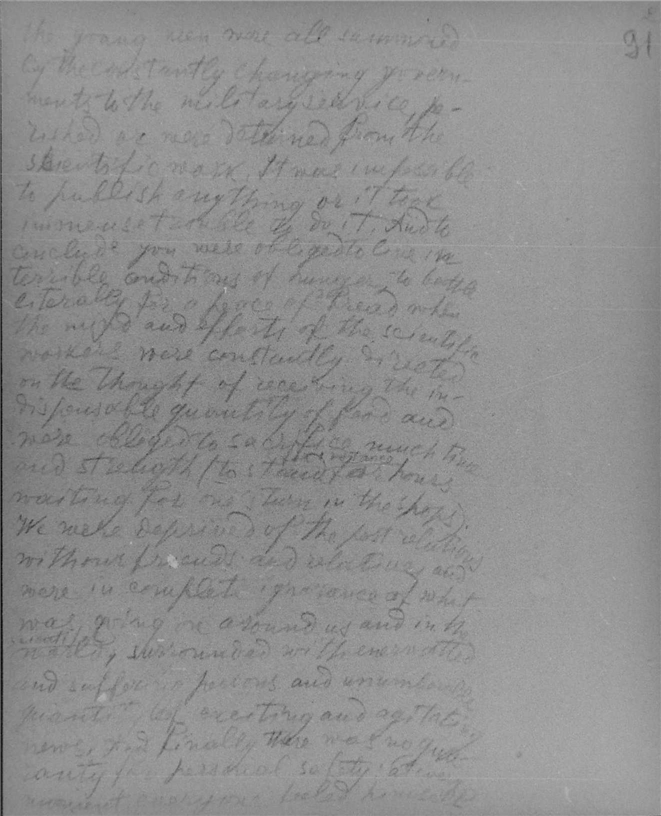 91
the young men were all summoned
by the constantly changing govern-
ments to the military service, pe-
rished or were deterned from the
scientific work. It was impossible
to publish anything or it took
immense trouble to do it. And to
conclude you were obliged to live in
terrible conditions of hunger, to battle
literally for a peace of bread when
the mind and efforts of the scientific
workers were constantly directed
on the thought of receiving the in-
dispensable quantity of food and
were obliged to sacrifice much time
and strength (to stand for hours
waiting for one's turn in the shops).
We were deprived of the post relations
with our friends and relatives and
were in complete ignorance of what
was going on around us and in the
scientific
world, surrounded with
and suffering persons and
quantity of exciting and agitating
news. And finally there was no gua-
ranty for personal safety: at every
moment everyone himself